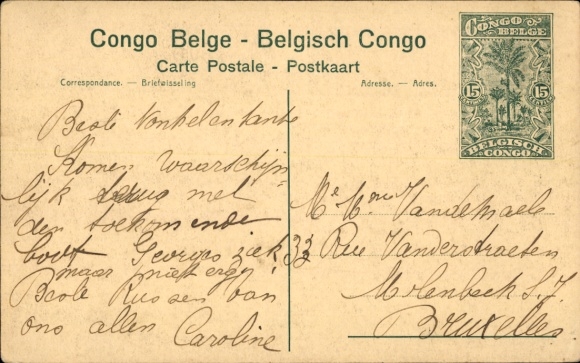 CONGO
BELGE
15 15
BELGISCH
CONGO
Congo Belge - Belgisch Congo
Carte Postale - Postkaart
Correspondance. — Briefwisseling
Adresse. — Adres.
Beste Nonkel en tante
Komen waarschijn
lijk terug met
den toekomende
boot Georges ziek
maar niet erg
Beste Kussen van
ons allen Caroline
Me Mme Vandemaele
33 Rue Vanderstraeten
Molenbeek S. J.
Bruxelles